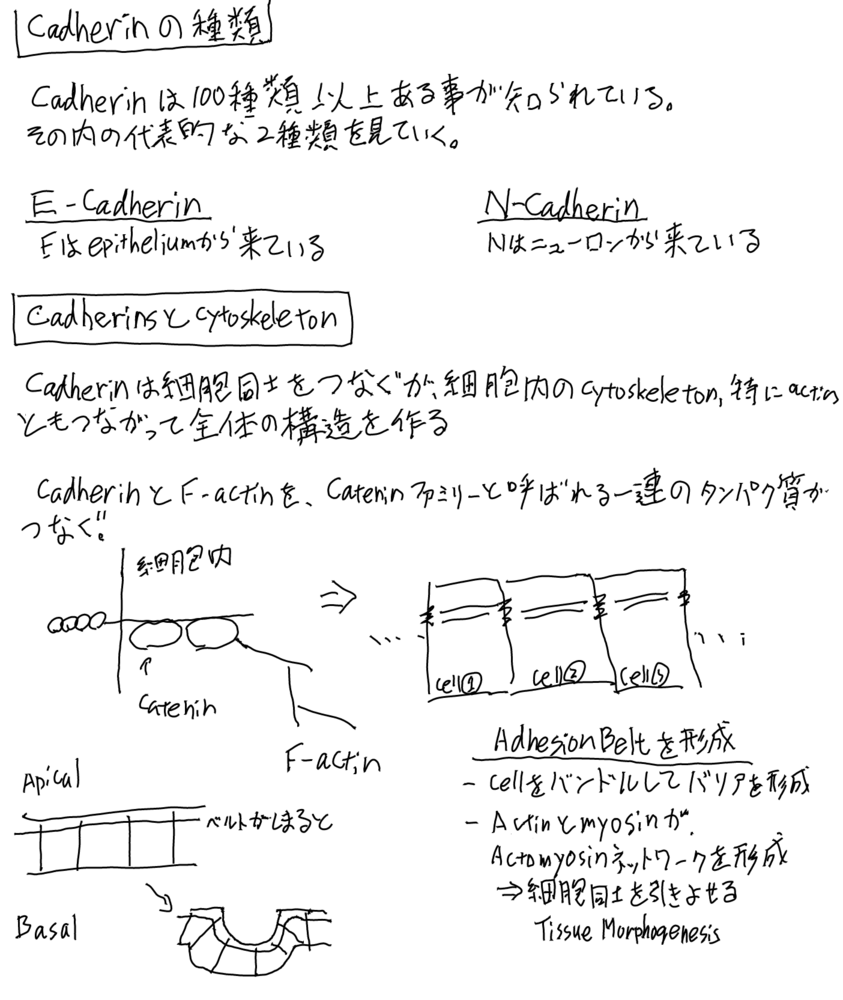 Cadherinの種類
Cadherinは100種類以上ある事が知られている。
その内の代表的な2種類を見ていく。
E-Cadherin
Eはepitheliumから来ている
N-Cadherin
Nはニューロンから来ている
Cadherinsとcytoskeleton
Cadherinは細胞同士をつなぐが、細胞内のcytoskeleton, 特にactin
ともつながって全体の構造を作る
CadherinとF-actinを、Cateninファミリーと呼ばれる一連のタンパク質が
つなぐ。
細胞内
Catenin
F-actin
⇒
cell①
cell②
cell③
Adhesion Beltを形成
- cellをバンドルしてバリアを形成
- Actinとmyosinが、
Actomyosinネットワークを形成
⇒細胞同士を引きよせる
Tissue Morphogenesis
Apical
ベルトがしまると
Basal